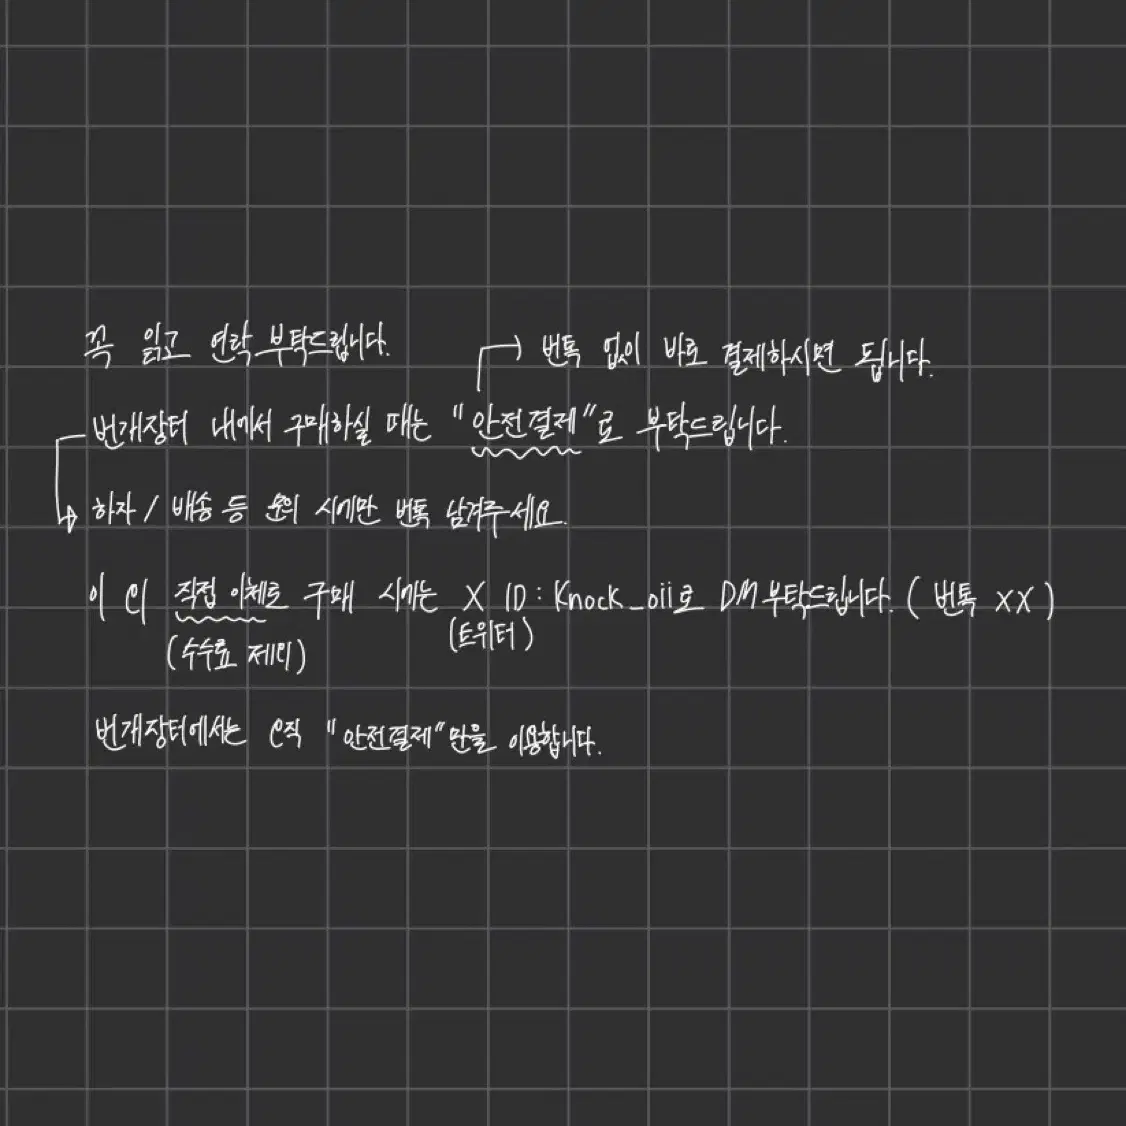 꼭 읽고 연락 부탁드립니다.
→ 번톡 없이 바로 결제하시면 됩니다.
번개장터 내에서 구매하실 때는 "안전결제"로 부탁드립니다.
→ 하자 / 배송 등 문의 시에만 번톡 남겨주세요.
이 외 직접 이체로 구매 시에는 X ID : Knock_oii로 DM 부탁드립니다. ( 번톡 XX )
(수수료 제외) (트위터)
번개장터에서는 오직 "안전결제"만을 이용합니다.